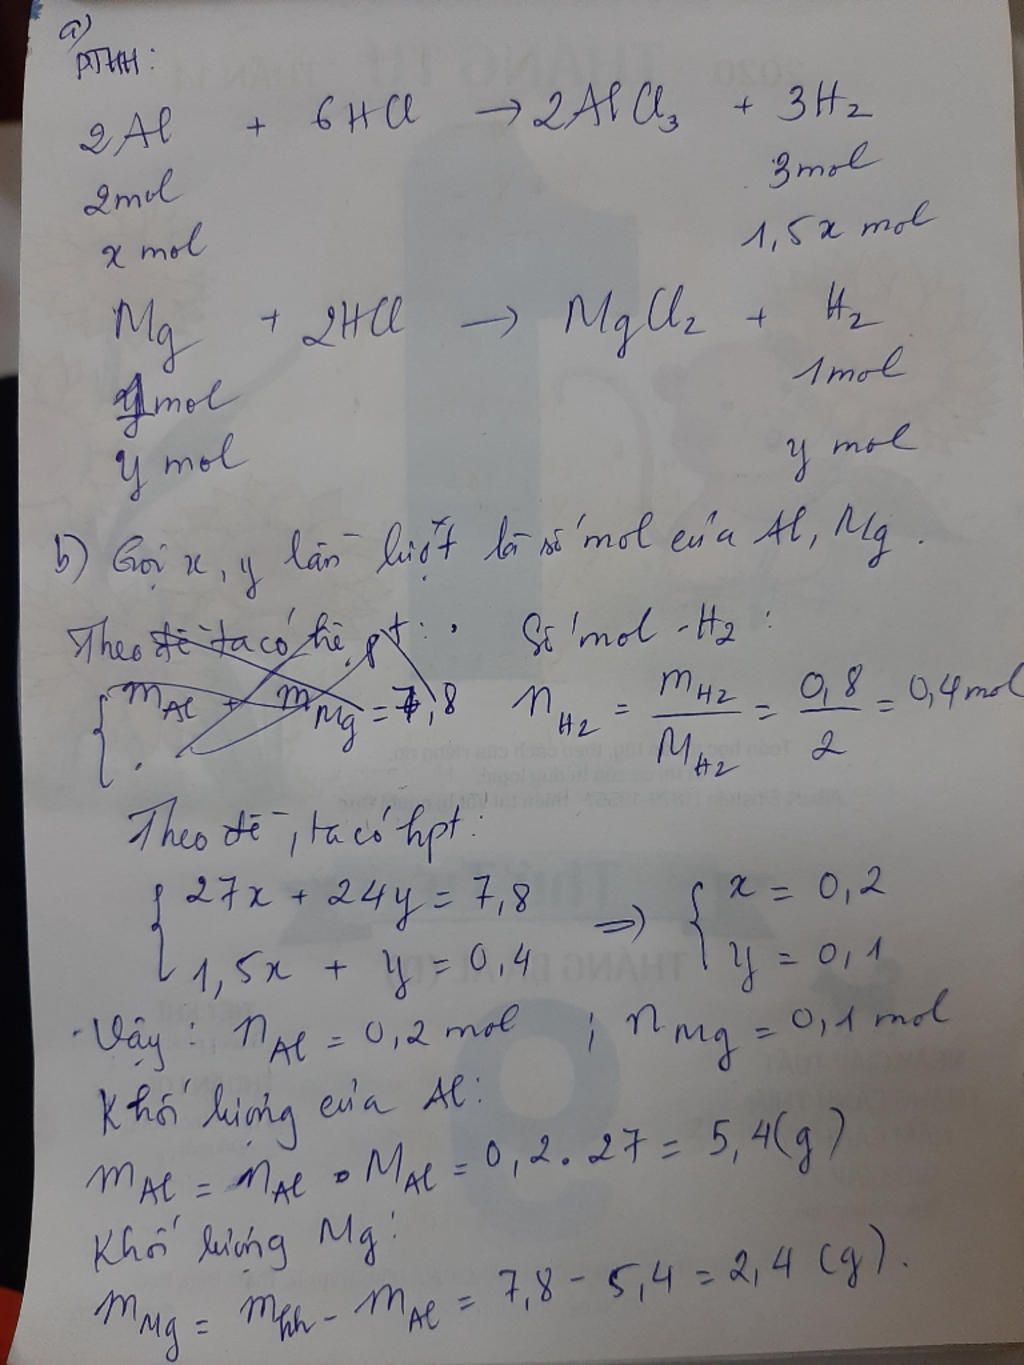 a)
PTHH:
2Al + 6HCl → 2AlCl₃ + 3H₂
2mol 3mol
x mol 1,5x mol
Mg + 2HCl → MgCl₂ + H₂
1mol 1mol
y mol y mol
b) Gọi x, y lần lượt là số mol của Al, Mg.
Theo đề ta có hệ pt: Số mol H₂:
m_Al + m_Mg = 7,8 n_H₂ = m_H₂ / M_H₂ = 0,8 / 2 = 0,4 mol
Theo đề, ta có hpt:
{ 27x + 24y = 7,8 ⇒ { x = 0,2
1,5x + y = 0,4 y = 0,1
Vậy: n_Al = 0,2 mol ; n_Mg = 0,1 mol
Khối lượng của Al:
m_Al = n_Al . M_Al = 0,2 . 27 = 5,4 (g)
Khối lượng Mg:
m_Mg = m_hh - m_Al = 7,8 - 5,4 = 2,4 (g).